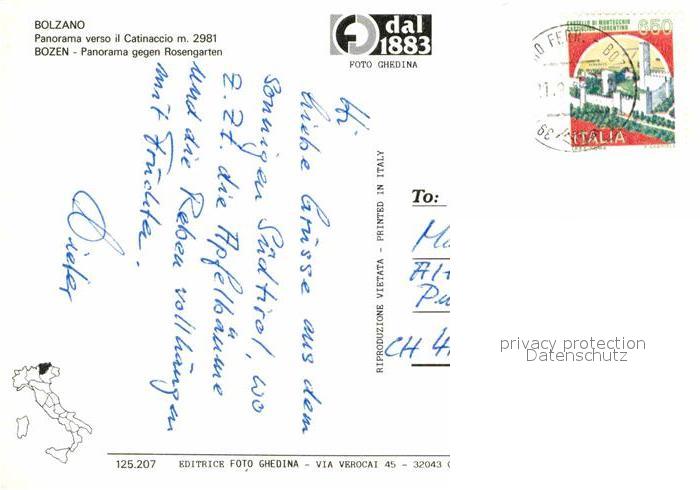 BOLZANO
Panorama verso il Catinaccio m. 2981
BOZEN - Panorama gegen Rosengarten
dal
1883
FOTO GHEDINA
CASTELLO DI MONTECCHIO
CASTIGLION FIORENTINO
650
ITALIA
Hi
liebe Grüsse aus dem
sonnigen Südtirol, wo
z.Zt. die Apfelbäume
und die Reben vollhängen
mit Früchten.
Dieter
RIPRODUZIONE VIETATA - PRINTED IN ITALY
To:
CH 4
privacy protection
Datenschutz
125.207 EDITRICE FOTO GHEDINA - VIA VEROCAI 45 - 32043 (